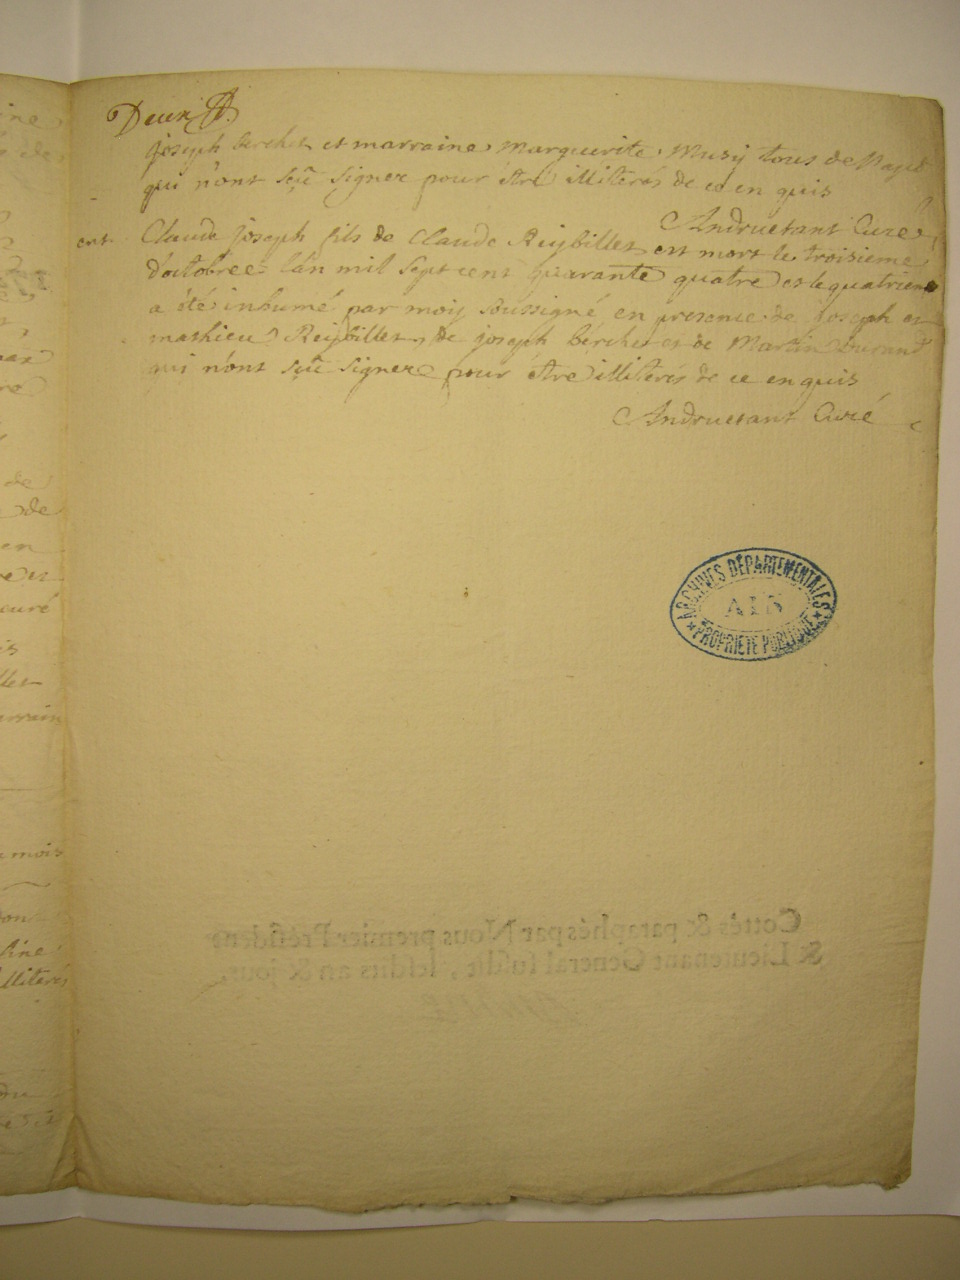 Deux
joseph berchet et marraine Marguerite Musy tous de
qui n'ont sçu signer pour être illiterés de ce en quis
Andruetant Curé
ent. Claude joseph fils de Claude Reybillet est mort le troisieme
d'octobre l'an mil sept cent quarante quatre et le quatrieme
a été inhumé par moy soussigné en presence de joseph et
mathieu Reybillet, de joseph berchet et de Martin Durand
qui n'ont sçu signer pour être illiterés de ce en quis
Andruetant Curé
ARCHIVES DÉPARTEMENTALES
AIN
PROPRIÉTÉ PUBLIQUE
Cottés & paraphés par Nous premier Président
& Lieutenant General susdit, lesdits an & jour.